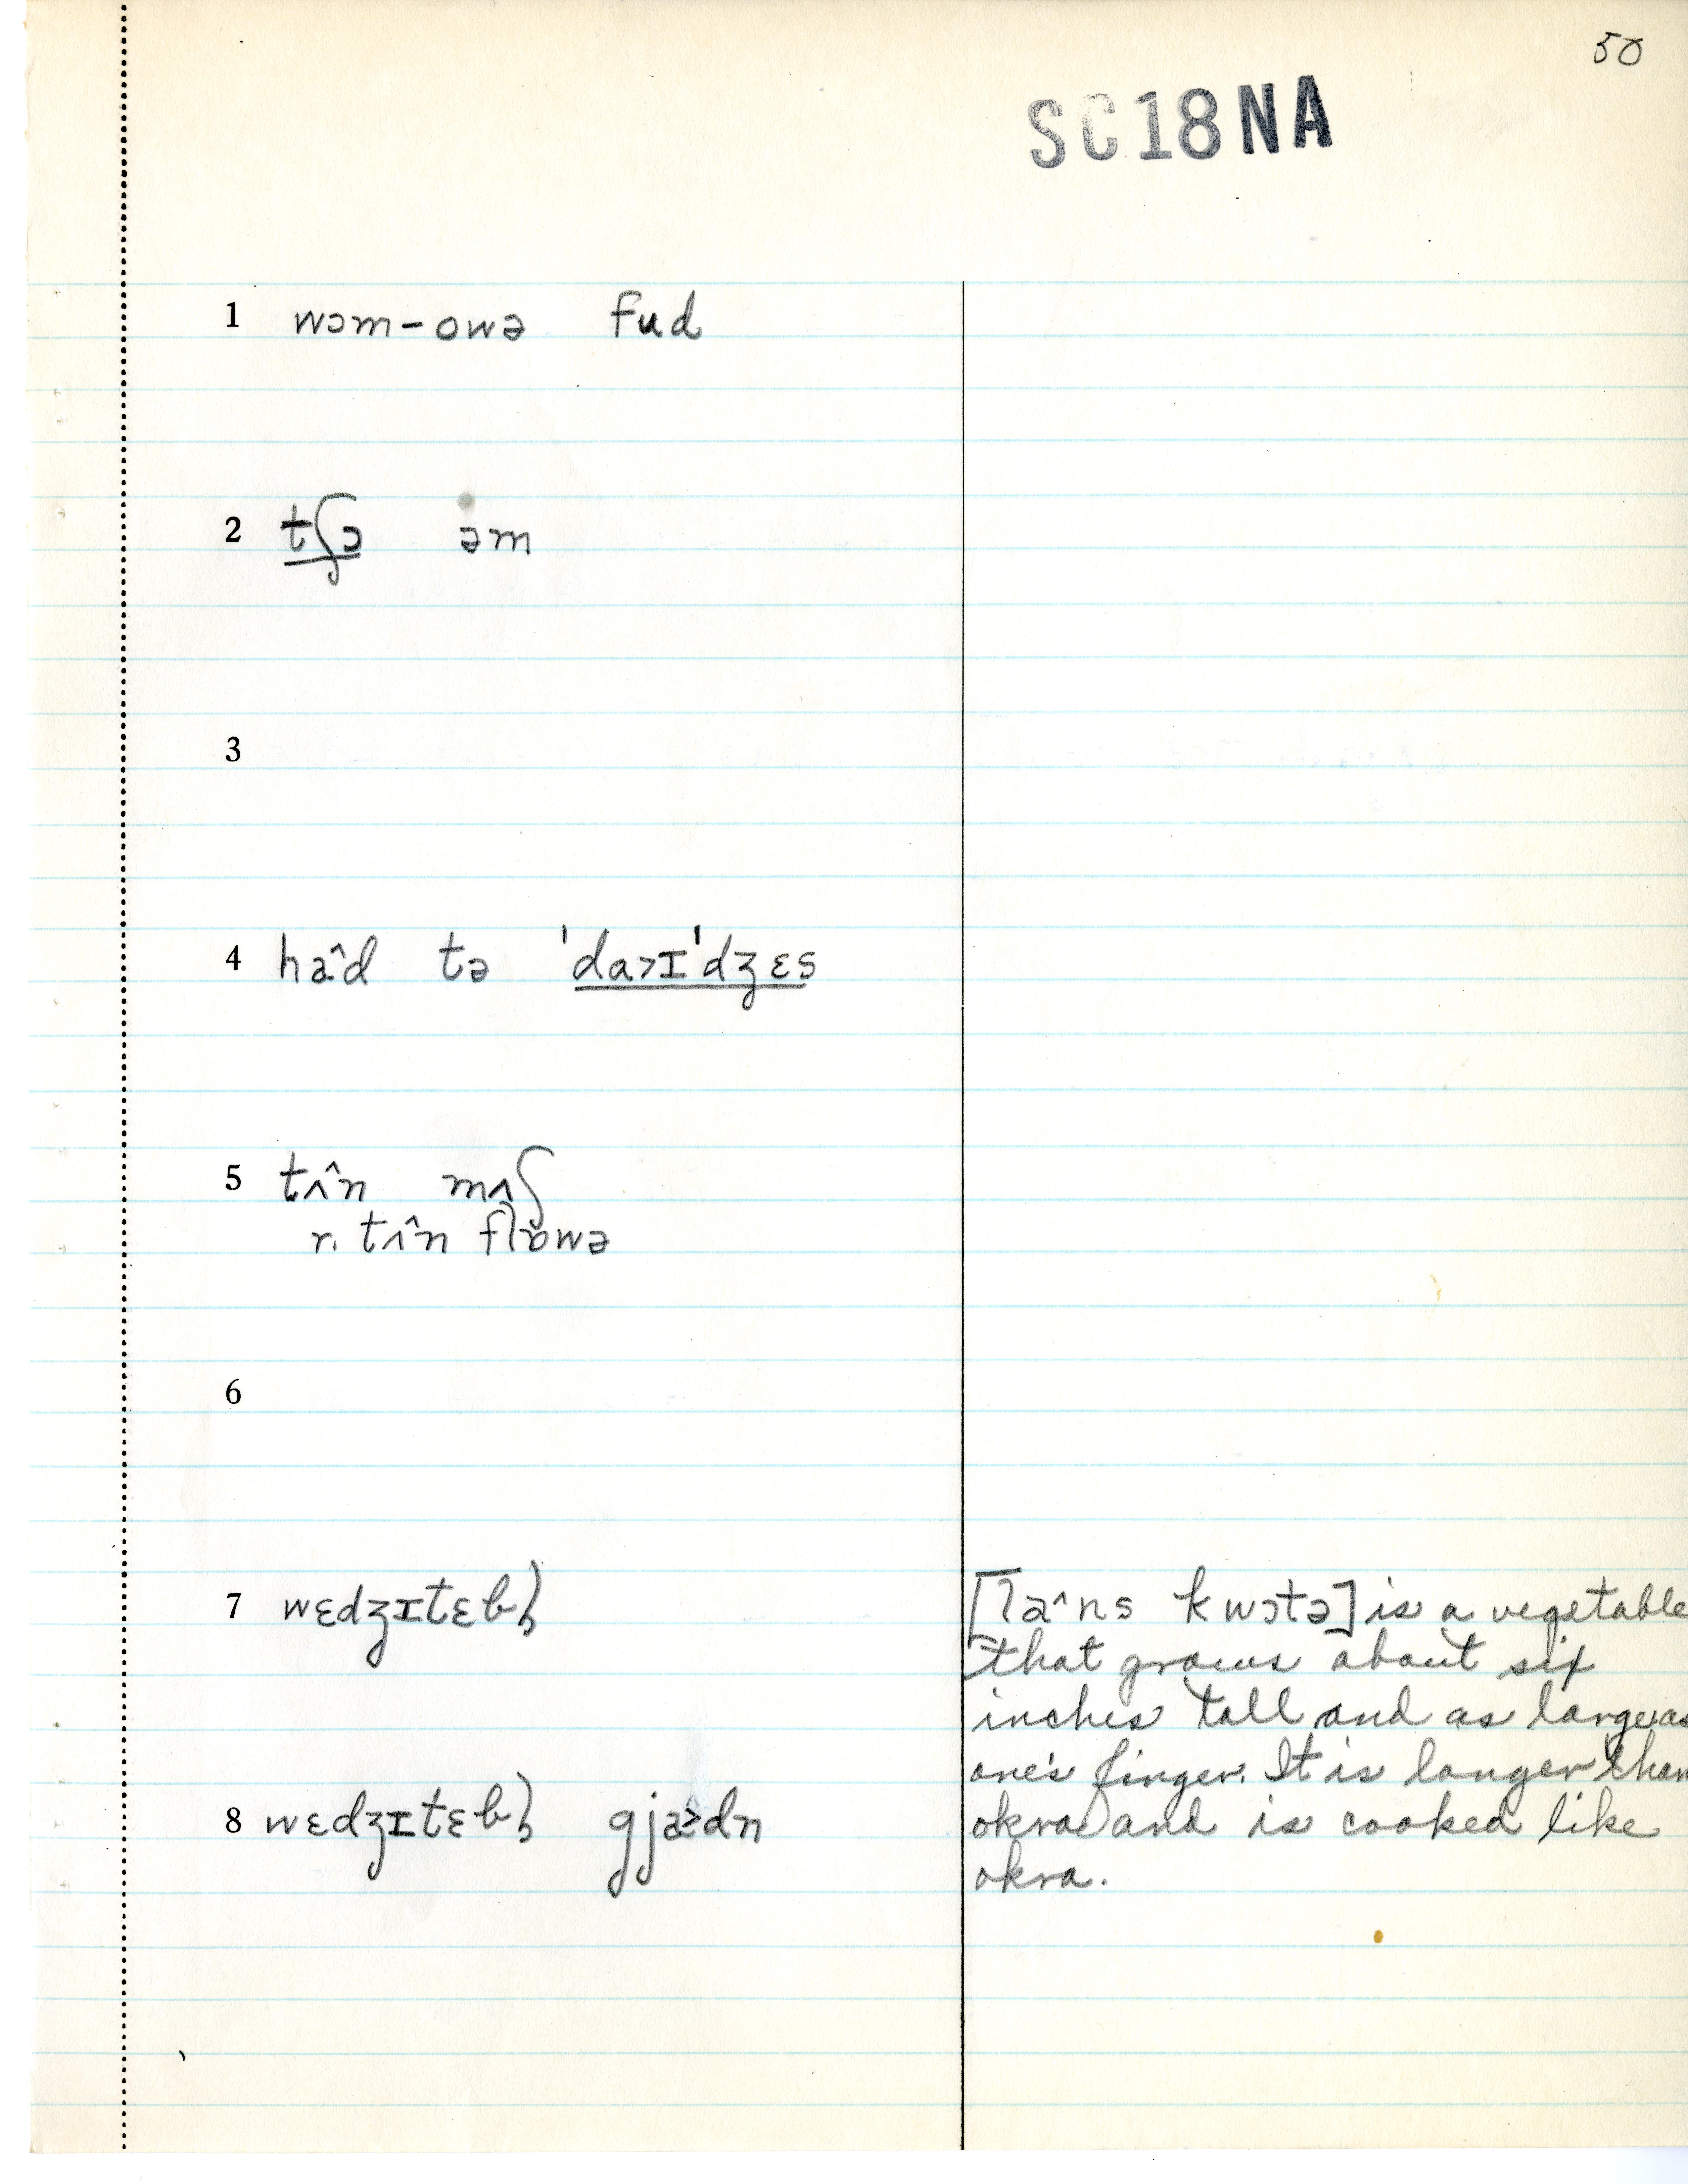 50
SC18NA
1 wɔm-owə fud
2 tʃɔ əm
3
4 ha^d tə 'da>ɪ'dʒɛs
5 tʌ^n mʌʃ
r. tʌ^n flɒwə
6
7 wɛdʒɪtɛbl̩
[la^ns kwɔtə] is a vegetable
that grows about six
inches tall and as large as
one's finger. It is longer than
8 wɛdʒɪtɛbl̩ gja>dn
okra and is cooked like
okra.